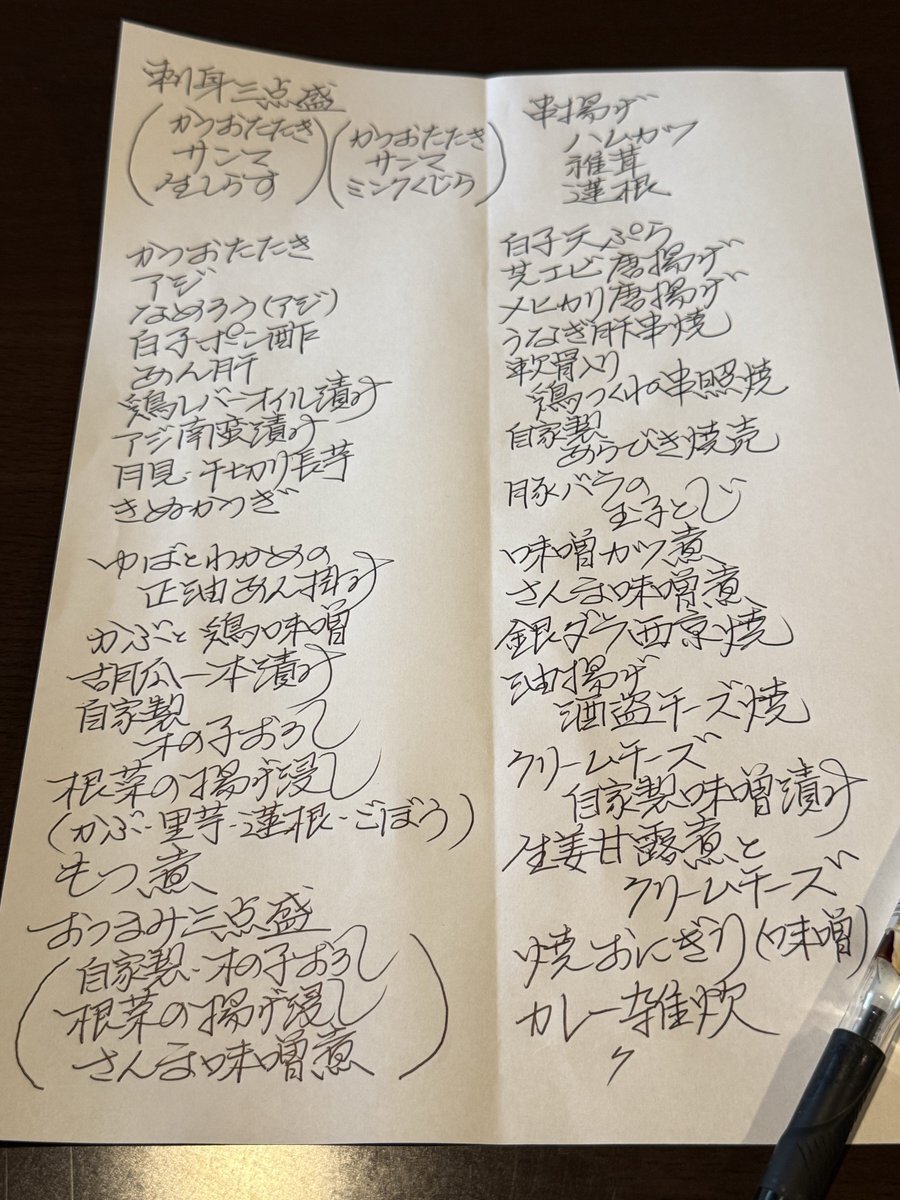 刺身三点盛
(かつおたたき
サンマ
生しらす)
(かつおたたき
サンマ
ミンクくじら)
かつおたたき
アジ
なめろう(アジ)
白子ポン酢
あん肝
鶏レバーオイル漬け
アジ南蛮漬け
月見・千切り長芋
きぬかつぎ
ゆばとわかめの
正油あん掛け
かぶと鶏味噌
胡瓜一本漬け
自家製
木の子おろし
根菜の揚げ浸し
(かぶ・里芋・蓮根・ごぼう)
もつ煮
おつまみ三点盛
(自家製・木の子おろし
根菜の揚げ浸し
さんま味噌煮)
串揚げ
ハムカツ
椎茸
蓮根
白子天ぷら
芝エビ唐揚げ
メヒカリ唐揚げ
うなぎ肝串焼
軟骨入り
鶏つくねの串照焼
自家製
あらびき焼売
豚バラの
玉子とじ
味噌カツ煮
さんま味噌煮
銀ダラ西京焼
油揚げ
酒盗チーズ焼
クリームチーズ
自家製味噌漬け
生姜甘露煮と
クリームチーズ
焼おにぎり(味噌)
カレー雑炊